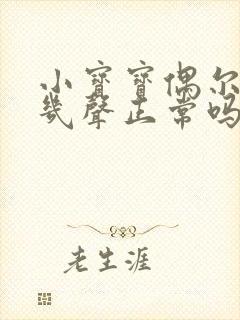 小寶寶偶尔
幾聲正常吗
老生涯